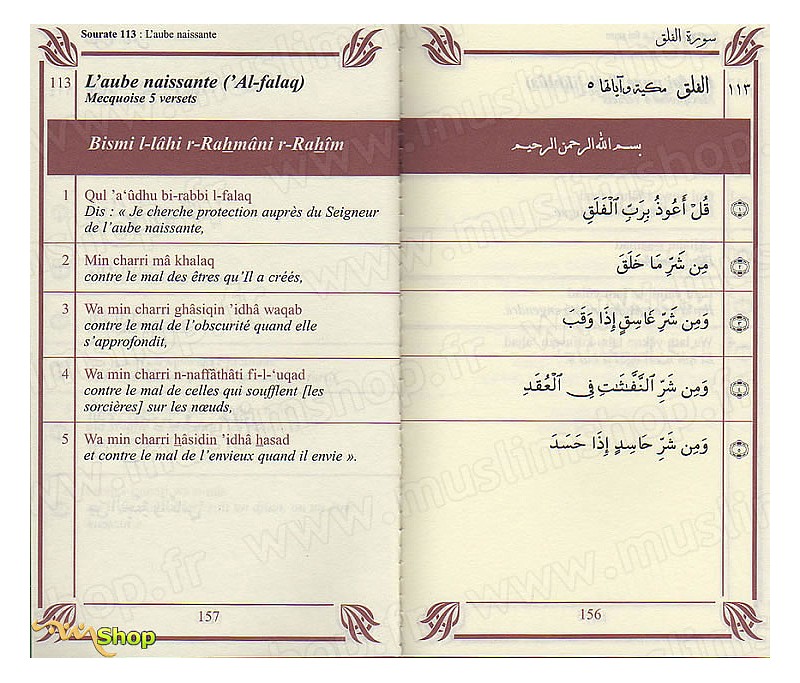 Sourate 113 : L'aube naissante
113 L'aube naissante ('Al-falaq)
Mecquoise 5 versets
Bismi l-lâhi r-Raẖmâni r-Raẖîm
1 Qul 'a'ûdhu bi-rabbi l-falaq
Dis : « Je cherche protection auprès du Seigneur
de l'aube naissante,
2 Min charri mâ khalaq
contre le mal des êtres qu'Il a créés,
3 Wa min charri ghâsiqin 'idhâ waqab
contre le mal de l'obscurité quand elle
s'approfondit,
4 Wa min charri n-naffâthâti fi-l-'uqad
contre le mal de celles qui soufflent [les
sorcières] sur les nœuds,
5 Wa min charri ẖâsidin 'idhâ ẖasad
et contre le mal de l'envieux quand il envie ».
157
سورة الفلق
١١٣ الفلق مكية وآياتها ٥
بسم الله الرحمن الرحيم
قُلْ أَعُوذُ بِرَبِّ ٱلْفَلَقِ ١
مِن شَرِّ مَا خَلَقَ ٢
وَمِن شَرِّ غَاسِقٍ إِذَا وَقَبَ ٣
وَمِن شَرِّ ٱلنَّفَّٰثَٰتِ فِى ٱلْعُقَدِ ٤
وَمِن شَرِّ حَاسِدٍ إِذَا حَسَدَ ٥
156
www.muslimshop.fr
Shop